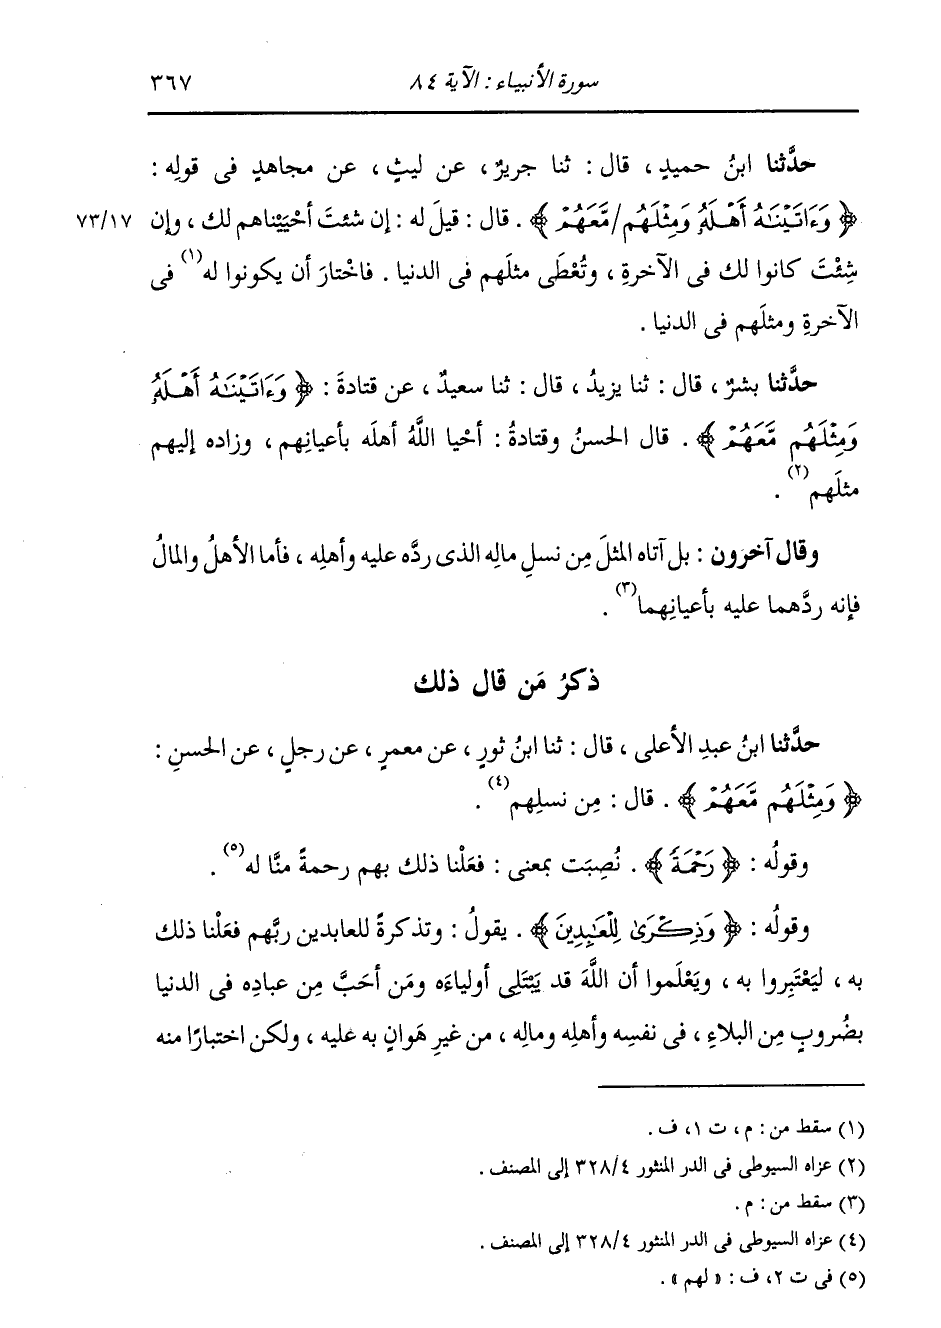 سورة الأنبياء : الآية ٨٤ ٣٦٧
حدَّثنا ابنُ حميدٍ ، قال : ثنا جريرٌ ، عن ليثٍ ، عن مجاهدٍ فى قولِه :
﴿ وَءَاتَيْنَٰهُ أَهْلَهُۥ وَمِثْلَهُم /مَّعَهُمْ ﴾ . قال : قيلَ له : إن شئتَ أحْيَيْناهم لك ، وإن ٧٣/١٧
شِئْتَ كانوا لك فى الآخرةِ ، وتُعْطَى مثلَهم فى الدنيا . فاخْتارَ أن يكونوا له(١) فى
الآخرةِ ومثلَهم فى الدنيا .
حدَّثنا بشرٌ ، قال : ثنا يزيدُ ، قال : ثنا سعيدٌ ، عن قتادةَ : ﴿ وَءَاتَيْنَٰهُ أَهْلَهُۥ
وَمِثْلَهُم مَّعَهُمْ ﴾ . قال الحسنُ وقتادةُ : أحْيا اللَّهُ أهلَه بأعيانِهم ، وزاده إليهم
مثلَهم(٢) .
وقال آخرون : بل آتاه المثلَ مِن نسلِ مالِه الذى ردَّه عليه وأهلِه ، فأما الأهلُ والمالُ
فإنه ردَّهما عليه بأعيانِهما(٣) .
ذكرُ مَن قال ذلك
حدَّثنا ابنُ عبدِ الأعلى ، قال : ثنا ابنُ ثورٍ ، عن معمرٍ ، عن رجلٍ ، عن الحسنِ :
﴿ وَمِثْلَهُم مَّعَهُمْ ﴾ . قال : مِن نسلِهم(٤) .
وقولُه : ﴿ رَحْمَةً ﴾ . نُصِبَت بمعنى : فعَلْنا ذلك بهم رحمةً منَّا له(٥) .
وقولُه : ﴿ وَذِكْرَىٰ لِلْعَٰبِدِينَ ﴾ . يقولُ : وتذكرةً للعابدين ربَّهم فعَلْنا ذلك
به ، ليَعْتَبِروا به ، ويَعْلَموا أن اللَّهَ قد يَبْتَلِى أولياءَه ومَن أحَبَّ مِن عبادِه فى الدنيا
بضُروبٍ مِن البلاءِ ، فى نفسِه وأهلِه ومالِه ، من غيرِ هَوانٍ به عليه ، ولكن اختبارًا منه
(١) سقط من : م ، ت ١ ، ف .
(٢) عزاه السيوطى فى الدر المنثور ٣٢٨/٤ إلى المصنف .
(٣) سقط من : م .
(٤) عزاه السيوطى فى الدر المنثور ٣٢٨/٤ إلى المصنف .
(٥) فى ت ٢ ، ف : « لهم » .